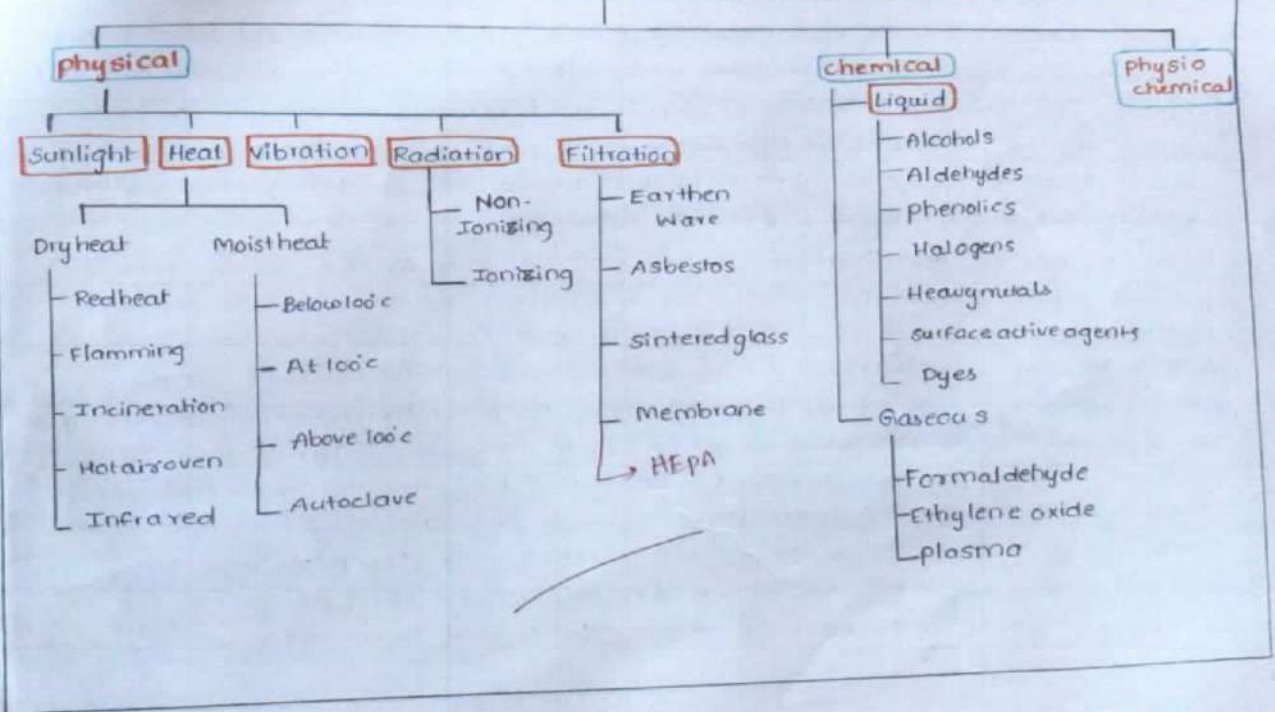 physical
Sunlight
Heat
Vibration
Radiation
Filtration
Dry heat
Redheat
Flamming
Incineration
Hot air oven
Infrared
Moist heat
Below 100°c
At 100°c
Above 100°c
Autoclave
Non-
Ionizing
Ionizing
Earthen
Ware
Asbestos
Sintered glass
Membrane
HEPA
chemical
Liquid
Alcohols
Aldehydes
phenolics
Halogens
Heavy metals
surface active agents
Dyes
Gaseous
Formaldehyde
Ethylene oxide
plasma
physio
chemical